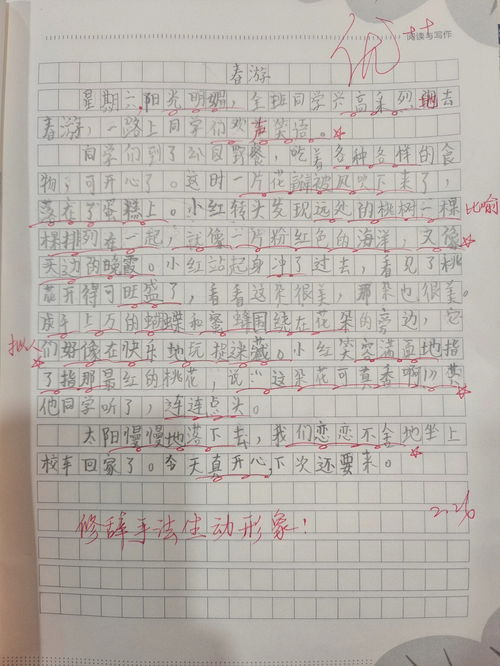 优++
阅读与写作
春游
星期六,阳光明媚,全班同学兴高采烈地去
春游,一路上同学们欢声笑语。
同学们到了公园野餐,吃着各种各样的食
物,可开心了。这时一片花瓣被风吹下来了,
落在了蛋糕上。小红转头发现远处的桃树一棵 比喻
棵排列在一起,就像一片粉红色的海洋,又像
天边的晚霞。小红站起身冲了过去,看见了桃
花开得可旺盛了,看看这朵很美,那朵也很美。
成千上万的蝴蝶和蜜蜂围绕在花朵的旁边,它
拟人 们好像在快乐地玩捉迷藏。小红笑容满面地指
了指那最红的桃花,说:“这朵花可真香啊!”其
他同学听了,连连点头。
太阳慢慢地落下去,我们恋恋不舍地坐上
校车回家了。今天真开心,下次还要来。
修辞手法生动形象!
2.26